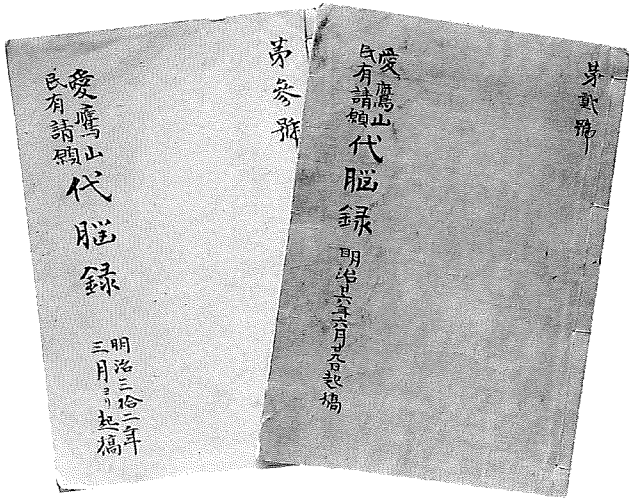 苐貳號
愛鷹山
民有請願
代脳録
明治廿六年六月廿九日起稿
苐參號
愛鷹山
民有請願
代脳録
明治三拾二年
三月ヨリ起稿